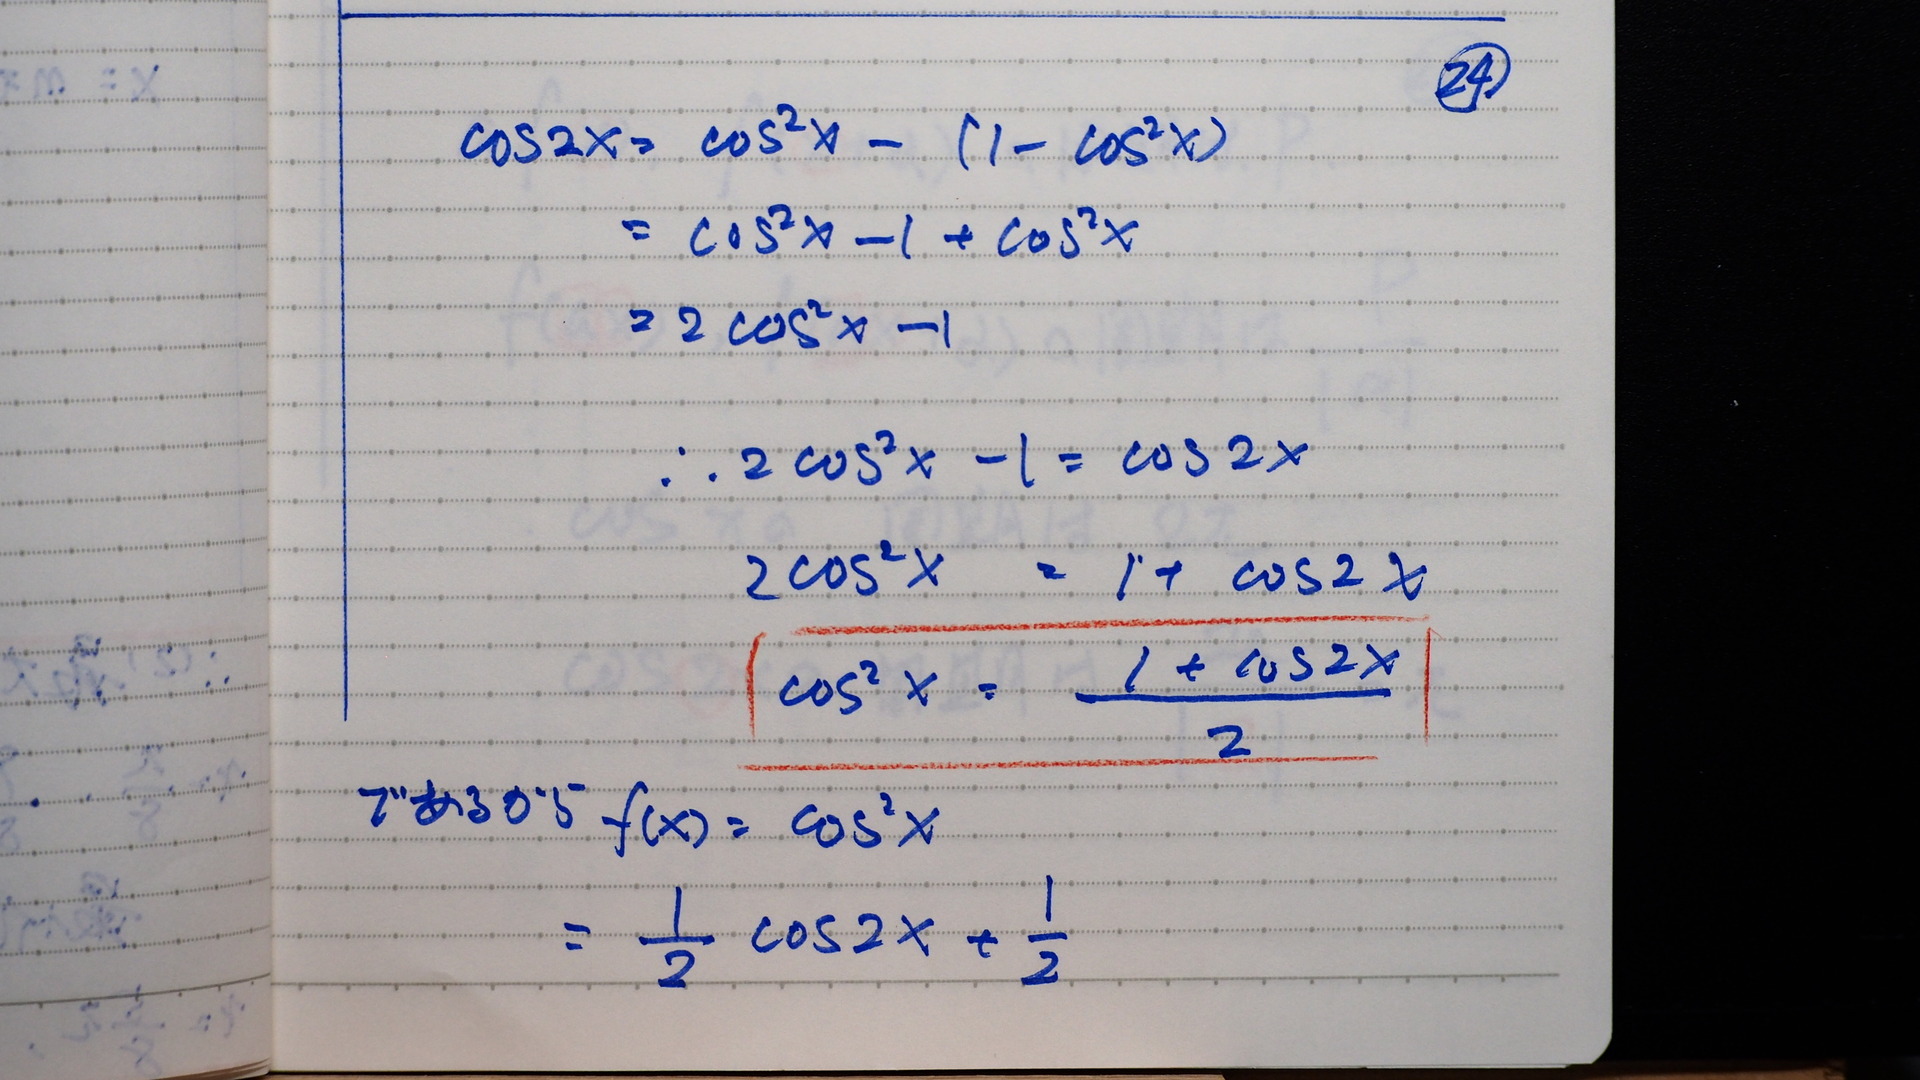 24
cos2x = cos²x - (1 - cos²x)
= cos²x - 1 + cos²x
= 2cos²x - 1
∴ 2cos²x - 1 = cos2x
2cos²x = 1 + cos2x
cos²x = (1 + cos2x)/2
であるから f(x) = cos²x
= 1/2 cos2x + 1/2